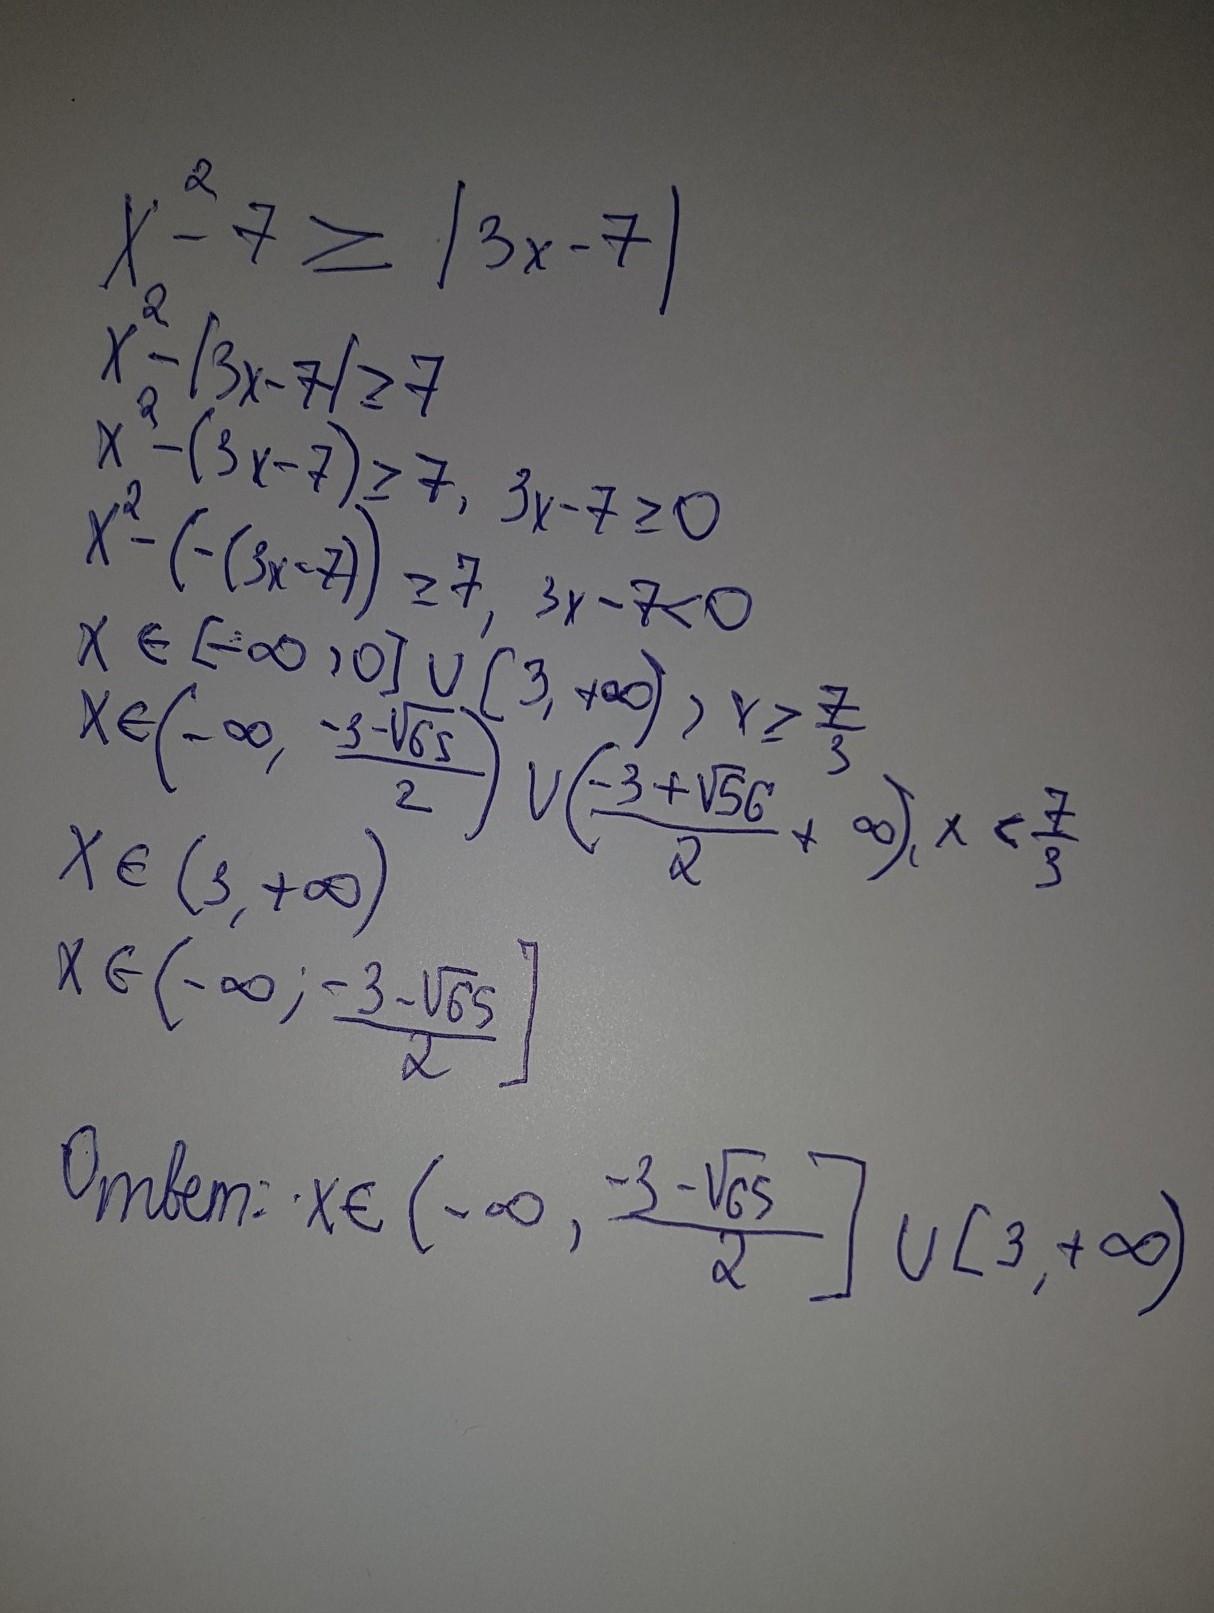 x² - 7 ≥ |3x - 7|
x² - |3x - 7| ≥ 7
x² - (3x - 7) ≥ 7, 3x - 7 ≥ 0
x² - (-(3x - 7)) ≥ 7, 3x - 7 < 0
x ∈ [-∞, 0] ∪ [3, +∞), x ≥ 7/3
x ∈ (-∞, (-3-√65)/2) ∪ ((-3+√56)/2 + ∞), x < 7/3
x ∈ (3, +∞)
x ∈ (-∞; (-3-√65)/2]
Ответ: x ∈ (-∞, (-3-√65)/2] ∪ [3, +∞)